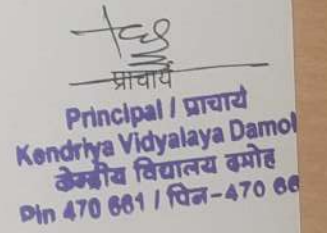 प्राचार्य
Principal / प्राचार्य
Kendriya Vidyalaya Damoh
केन्द्रीय विद्यालय दमोह
Pin 470 661 / पिन-470 66